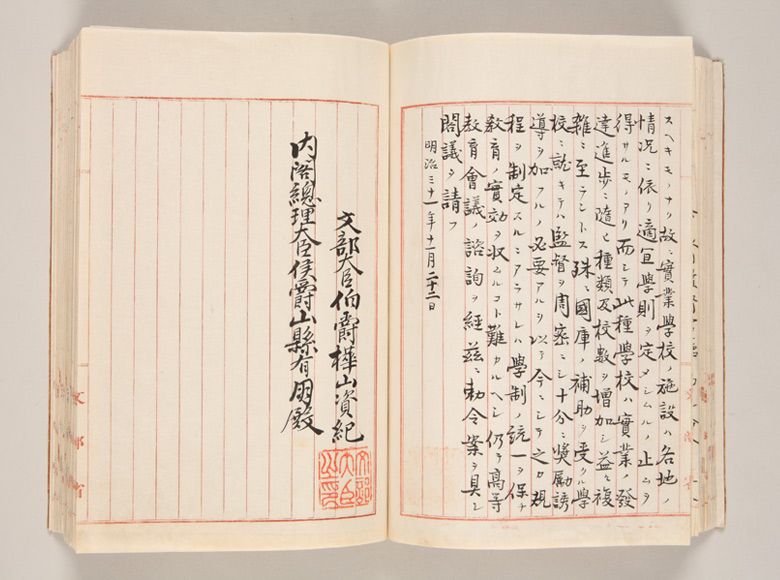 スヘキモノナリ故ニ實業學校ノ施設ハ各地ノ
情況ニ依リ適宜學則ヲ定メシムルノ止ムヲ
得サルモノアリ而シテ此種學校ハ實業ノ發
達進歩ニ隨ヒ種類及校數ヲ增加シ益々複
雜ニ至ラントス殊ニ國庫ノ補助ヲ受クル學
校ニ就キテハ監督ヲ周密ニシ十分ニ奬勵誘
導ヲ加フルノ必要アルヲ以テ今ニシテ之カ規
程ヲ制定スルニアラサレハ學制ノ統一ヲ保チ
敎育ノ實効ヲ収ムルコト難カルヘシ仍テ高等
敎育會議ノ諮詢ヲ經茲ニ勅令案ヲ具シ
閣議ヲ請フ
明治三十一年十一月二十二日
文部大臣伯爵樺山資紀
文部大臣之印
内閣總理大臣侯爵山縣有朋殿
文部省